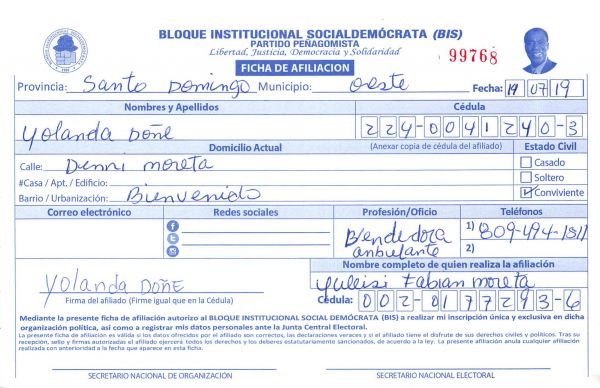 BLOQUE INSTITUCIONAL SOCIALDEMÓCRATA (BIS)
PARTIDO PEÑAGOMISTA
Libertad, Justicia, Democracia y Solidaridad
99768
FICHA DE AFILIACION
Provincia: Santo Domingo Municipio: Oeste Fecha: 19 07 19
Nombres y Apellidos Cédula
Yolanda Doñe 224-0041240-3
Domicilio Actual (Anexar copia de cédula del afiliado) Estado Civil
Calle: Denni moreta Casado
#Casa / Apt. / Edificio: Soltero
Barrio / Urbanización: Bienvenido Conviviente
Correo electrónico Redes sociales Profesión/Oficio Teléfonos
Bendedora anbulante 1) 809-494-1311
2)
Nombre completo de quien realiza la afiliación
Yolanda Doñe Yuleisi Fabian moreta
Firma del afiliado (Firme igual que en la Cédula) Cédula: 002-0177293-6
Mediante la presente ficha de afiliación autorizo al BLOQUE INSTITUCIONAL SOCIAL DEMÓCRATA (BIS) a realizar mi inscripción única y exclusiva en dicha
organización política, así como a registrar mis datos personales ante la Junta Central Electoral.
La presente ficha de afiliación es válida si los datos ofrecidos por el afiliado son correctos, las declaraciones veraces y si el afiliado tiene el disfrute de sus derechos civiles y políticos. Tras su
recepción, sello y firmas autorizadas el afiliado ejercerá todos los derechos y los deberes estatutariamente sancionados, de acuerdo a la ley. La presente afiliación anula cualquier afiliación
realizada con anterioridad a la fecha que aparece en esta ficha.
SECRETARIO NACIONAL DE ORGANIZACIÓN SECRETARIO NACIONAL ELECTORAL